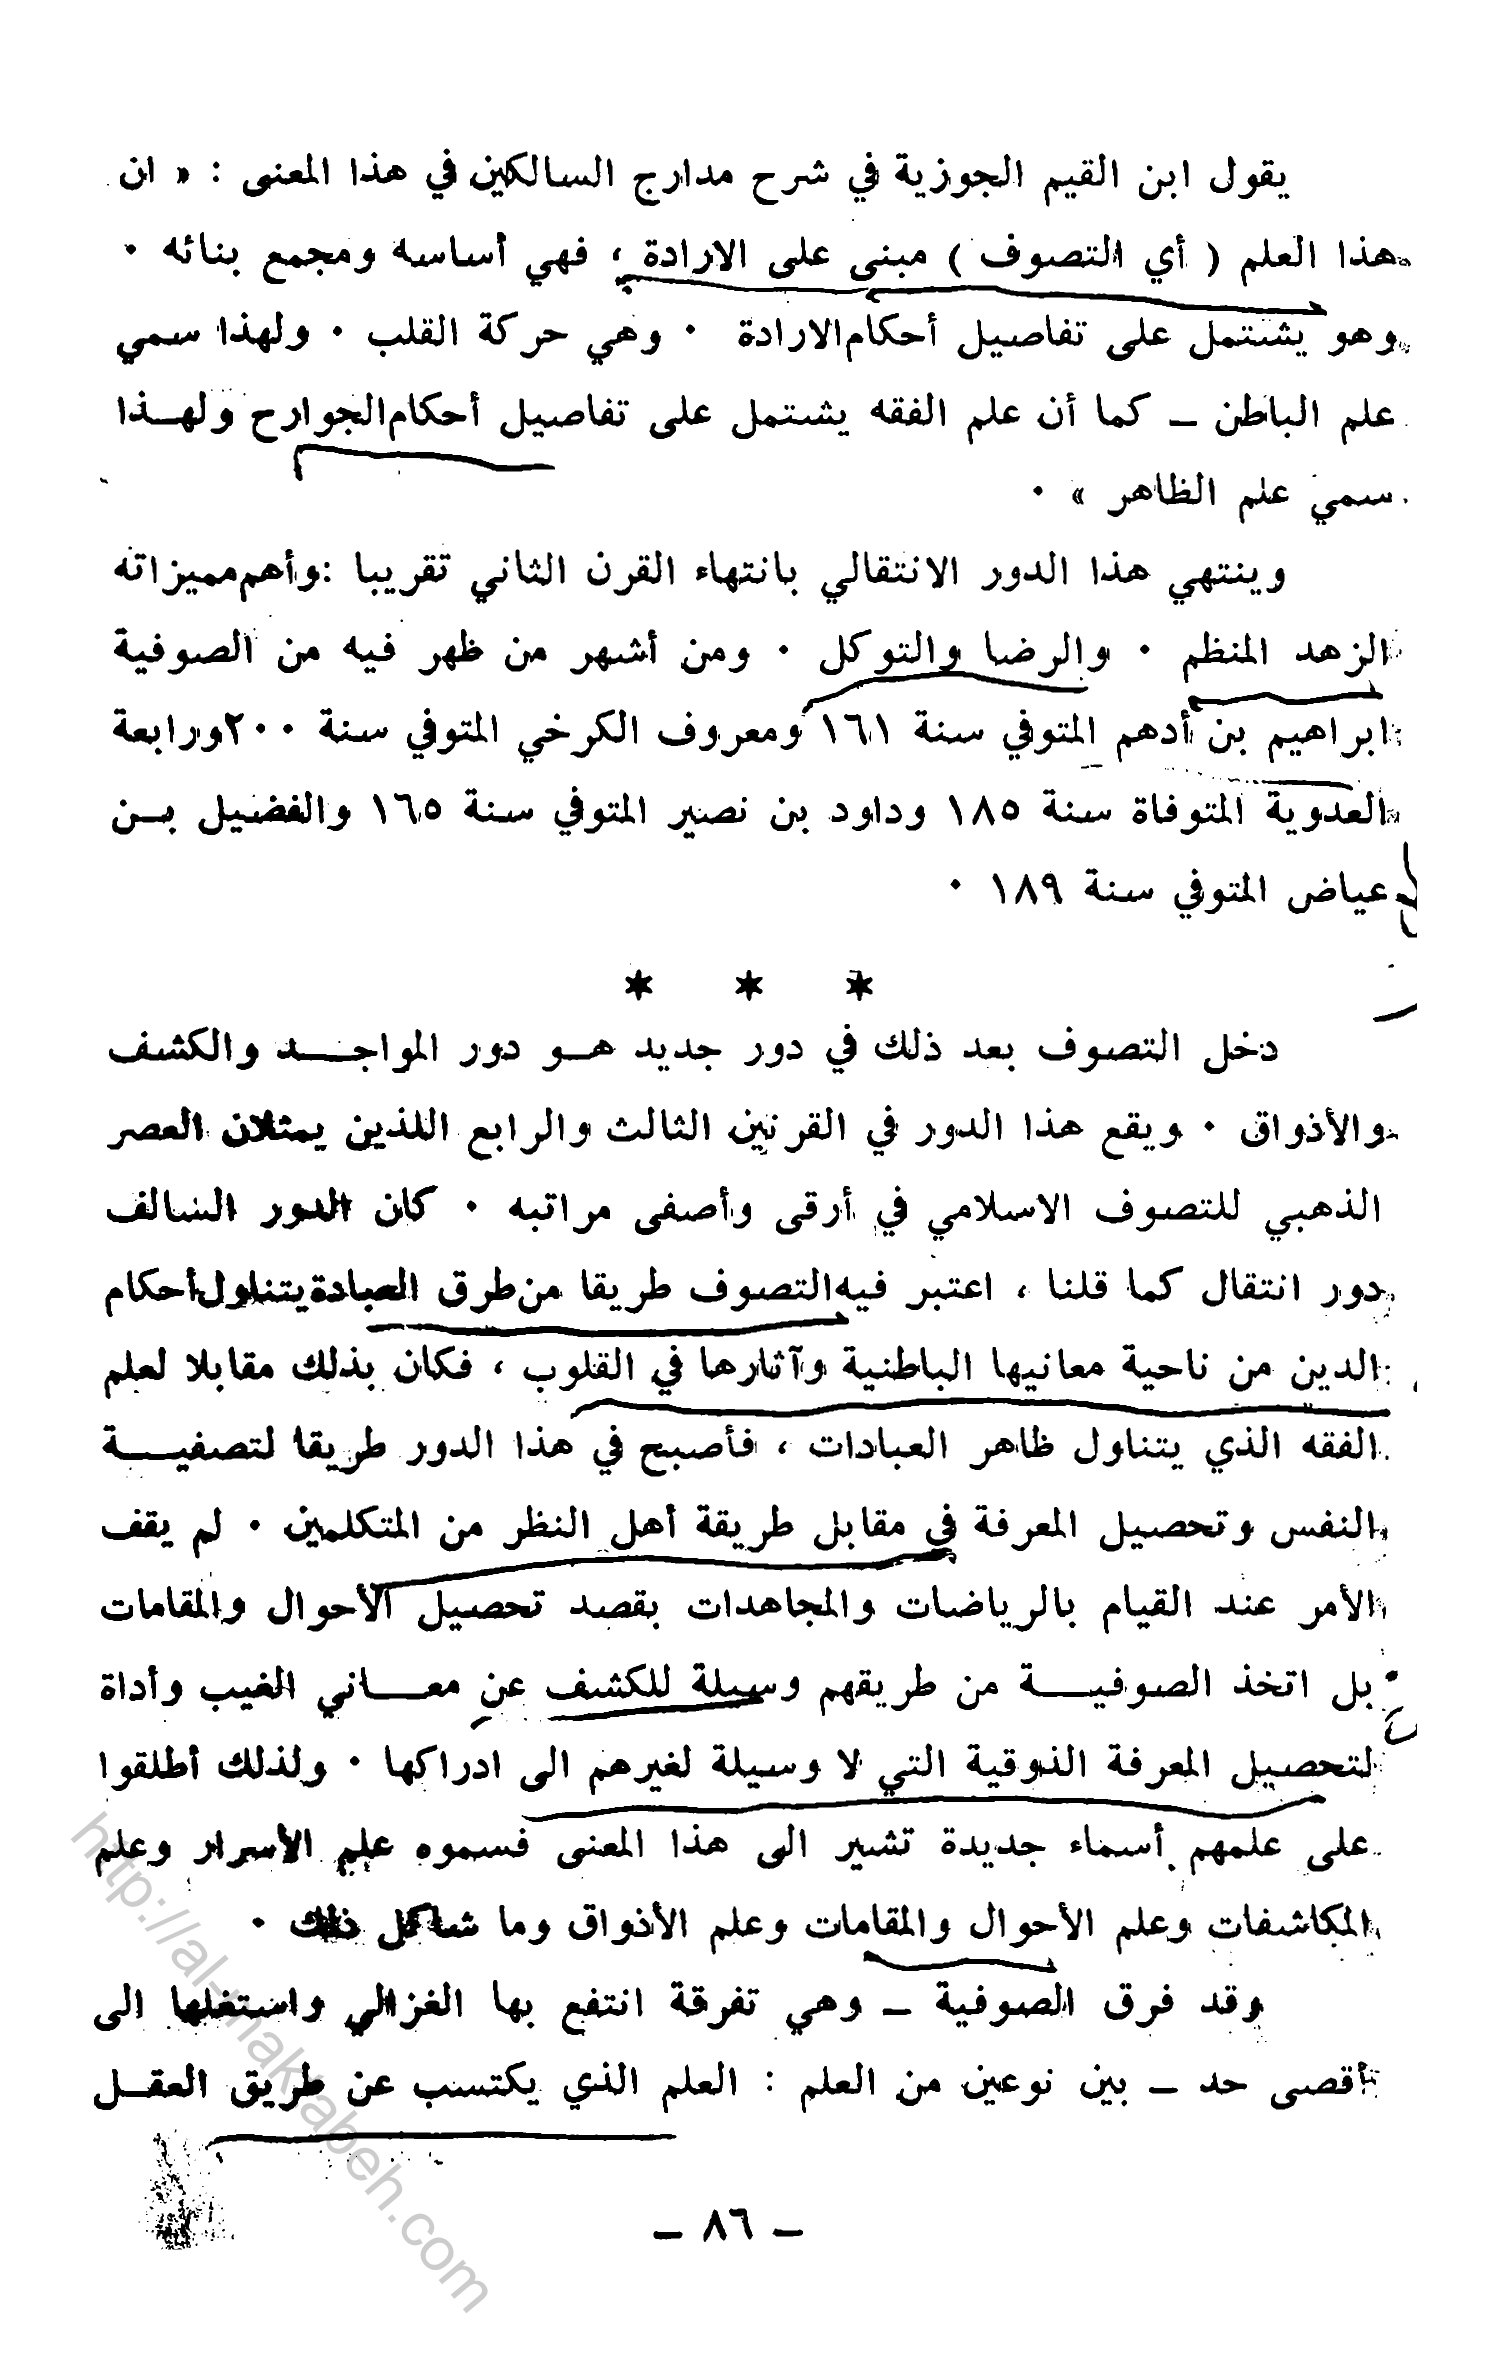 يقول ابن القيم الجوزية في شرح مدارج السالكين في هذا المعنى : « ان
هذا العلم ( أي التصوف ) مبنى على الارادة ، فهي أساسه ومجمع بنائه ٠
وهو يشتمل على تفاصيل أحكام الارادة ٠ وهي حركة القلب ٠ ولهذا سمي
علم الباطن ــ كما أن علم الفقه يشتمل على تفاصيل أحكام الجوارح ولهــذا
سمي علم الظاهر » ٠
وينتهي هذا الدور الانتقالي بانتهاء القرن الثاني تقريبا : وأهم مميزاته
الزهد المنظم ٠ والرضا والتوكل ٠ ومن أشهر من ظهر فيه من الصوفية
ابراهيم بن أدهم المتوفي سنة ١٦١ ومعروف الكرخي المتوفي سنة ٢٠٠ ورابعة
العدوية المتوفاة سنة ١٨٥ وداود بن نصير المتوفي سنة ١٦٥ والفضيل بــن
عياض المتوفي سنة ١٨٩ ٠
* * *
دخل التصوف بعد ذلك في دور جديد هــو دور المواجــــد والكشف
والأذواق ٠ ويقع هذا الدور في القرنين الثالث والرابع اللذين يمثلان العصر
الذهبي للتصوف الاسلامي في أرقى وأصفى مراتبه ٠ كان الدور السالف
دور انتقال كما قلنا ، اعتبر فيه التصوف طريقا من طرق العبادة يتناول أحكام
الدين من ناحية معانيها الباطنية وآثارها في القلوب ، فكان بذلك مقابلا لعلم
الفقه الذي يتناول ظاهر العبادات ، فأصبح في هذا الدور طريقا لتصفيــــة
النفس وتحصيل المعرفة في مقابل طريقة أهل النظر من المتكلمين ٠ لم يقف
الأمر عند القيام بالرياضات والمجاهدات بقصد تحصيل الأحوال والمقامات
بل اتخذ الصوفيــــة من طريقهم وسيلة للكشف عن معــــاني الغيب وأداة
لتحصيل المعرفة الذوقية التي لا وسيلة لغيرهم الى ادراكها ٠ ولذلك أطلقوا
على علمهم أسماء جديدة تشير الى هذا المعنى فسموه علم الأسرار وعلم
المكاشفات وعلم الأحوال والمقامات وعلم الأذواق وما شاكل ذلك ٠
وقد فرق الصوفية ــ وهي تفرقة انتفع بها الغزالي واستغلها الى
أقصى حد ــ بين نوعين من العلم : العلم الذي يكتسب عن طريق العقــل
ــ ٨٦ ــ
http://al-maktabeh.com